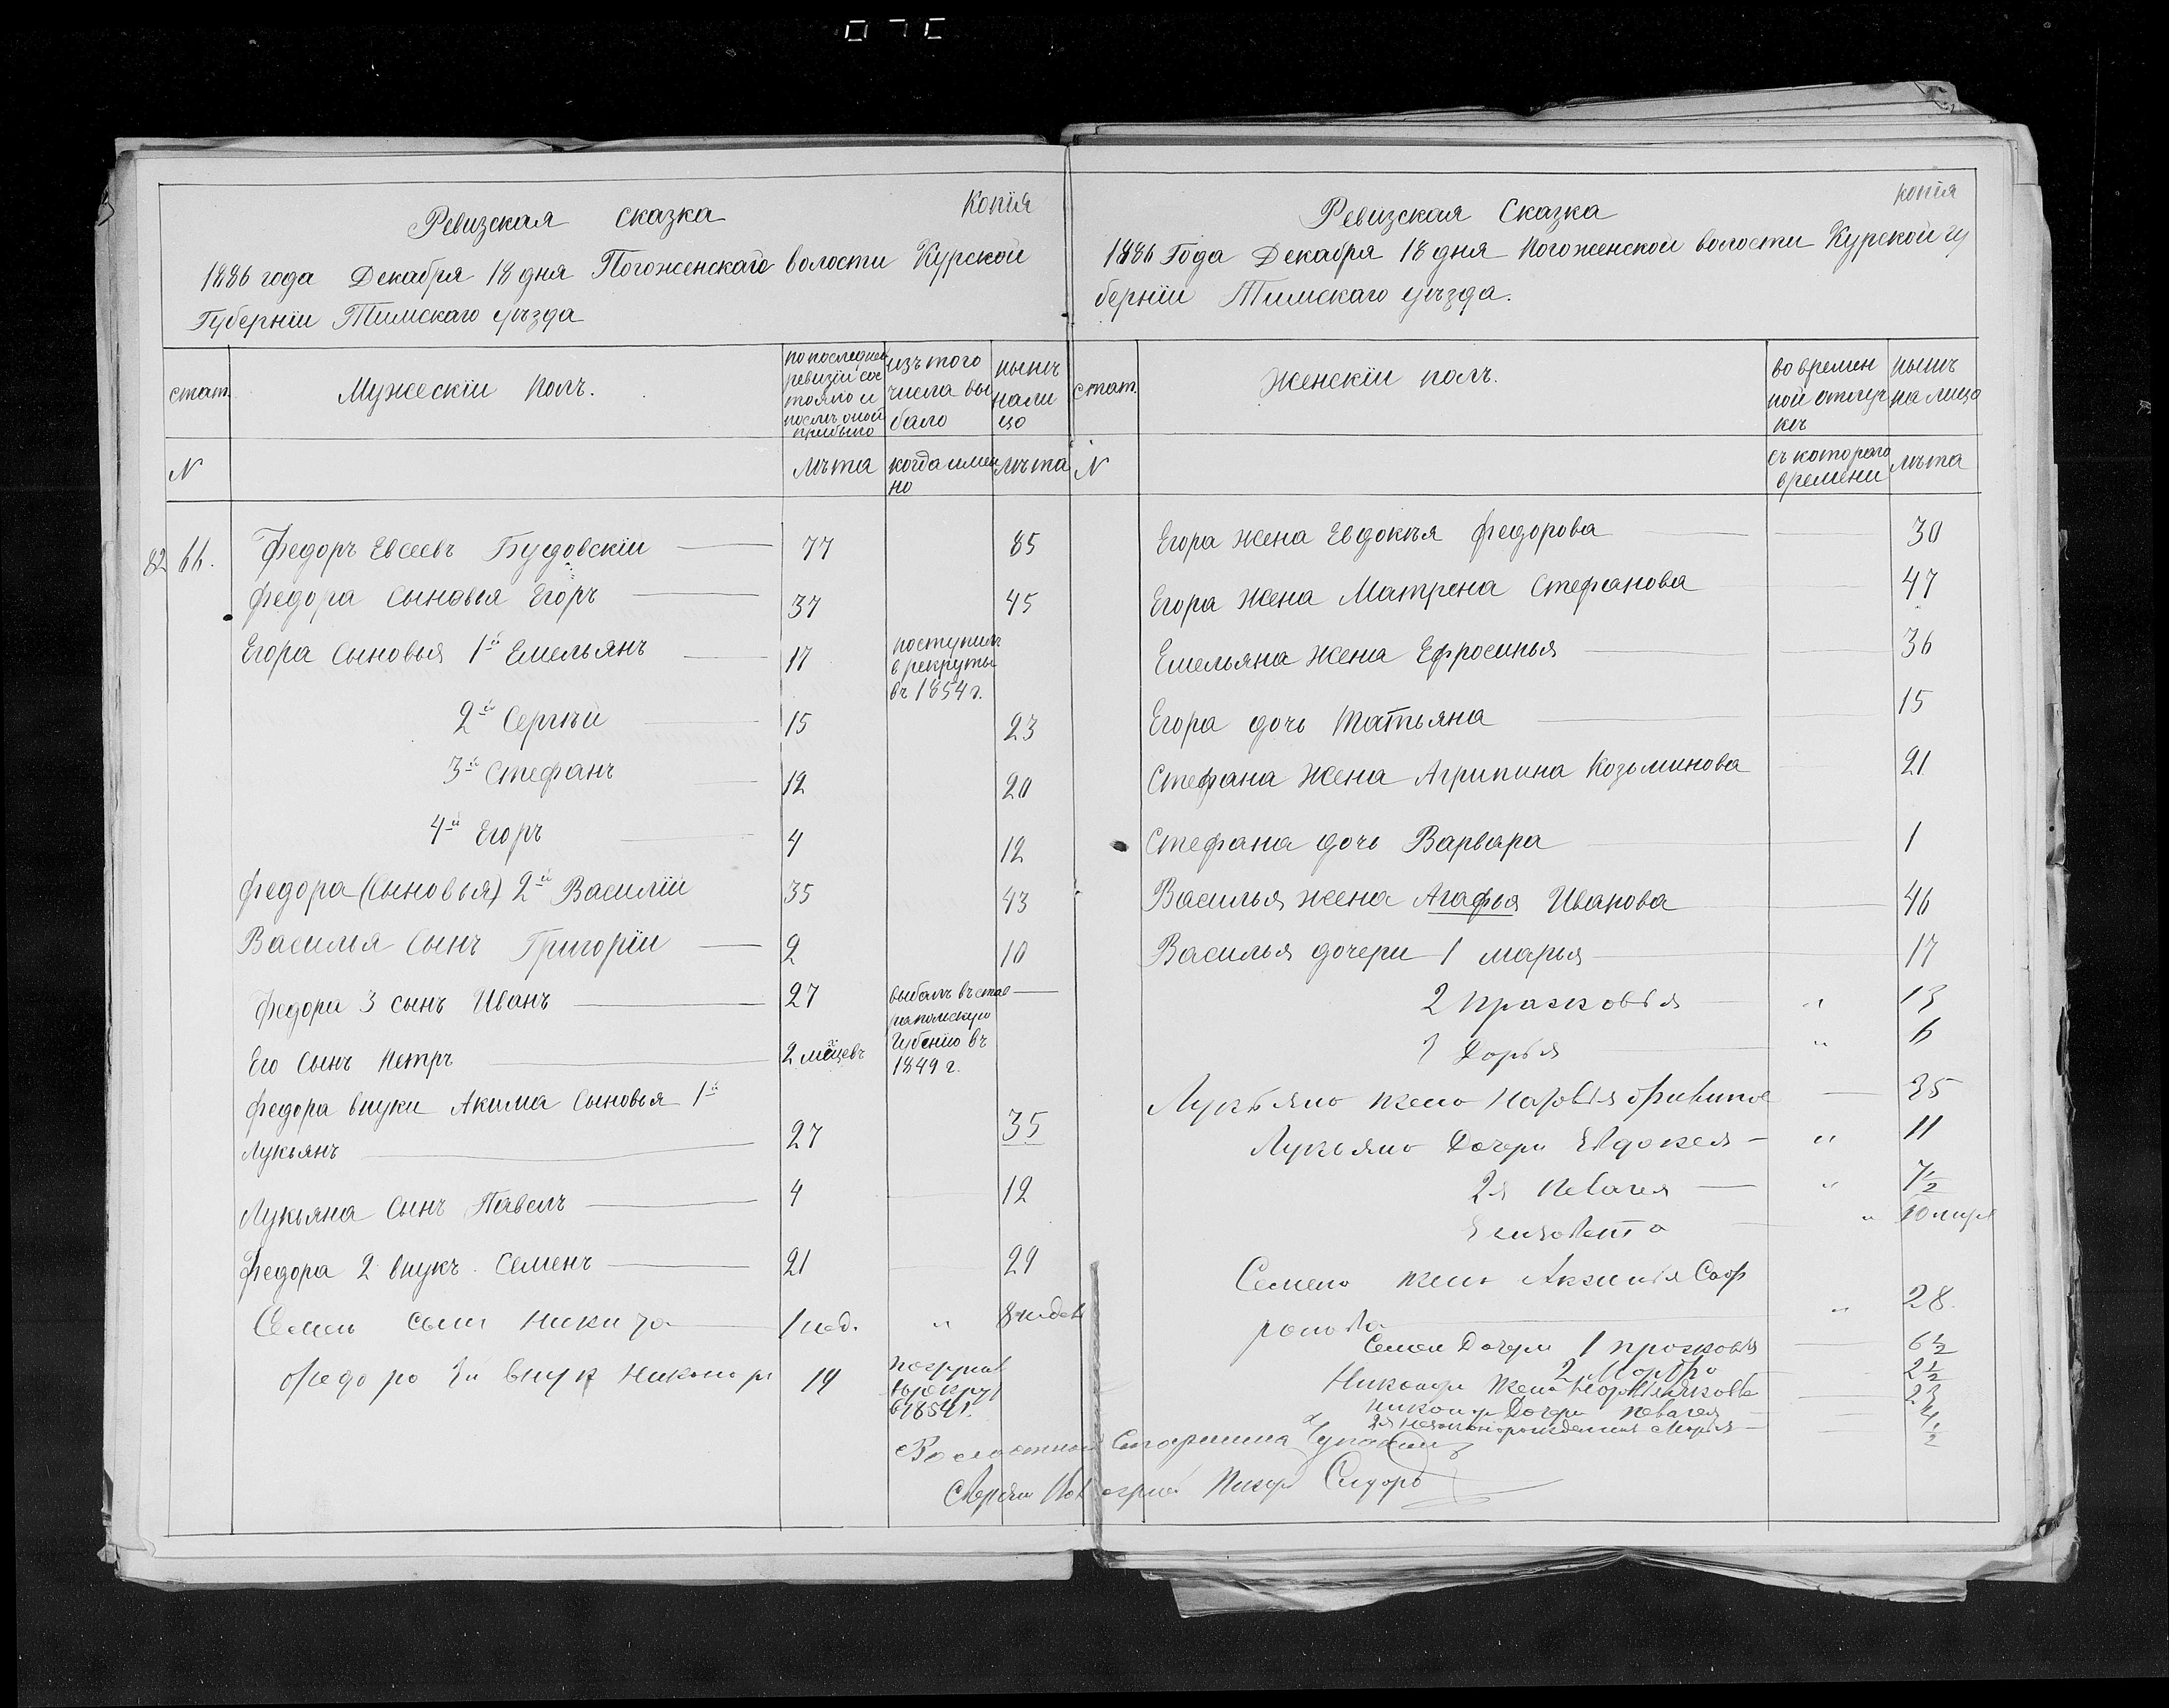 Копія
Ревизская сказка
1886 года Декабря 18 дня Погоженскаго волости Курской
Губерніи Тимскаго уѣзда
стат.
Мужескіи полъ.
по последней ревизіи сос тояло и послѣ оной прибыло
изъ того числа вы было
нынѣ нали цо
N
лѣта
когда имен но
лѣта
82 66. Федоръ Евсеевъ Будовскіи 77 85
Федора сыновья Егоръ 37 45
Егора сыновья 1й Емельянъ 17 поступилъ в рекруты въ 1854 г.
2й Сергѣй 15 23
3й Стефанъ 12 20
4й Егоръ 4 12
Федора (сыновья) 2й Василій 35 43
Василья сынъ Григоріи 2 10
Федора 3 сынъ Иванъ 27 выбылъ въ став
Его сынъ Петръ 2 мѣцевъ Губенію въ 1849 г.
Федора внуки Акима сыновья 1й
Лукьянъ 27 35
Лукьяна сынъ Павелъ 4 12
Федора 2 внукъ Семенъ 21 29
Семен сын Никита 1 нед. "
Федоро 3й внук Никонор 19 1854 г.
копія
Ревизская Сказка
1886 Года Декабря 18 дня Погоженской волости Курской гу
берніи Тимскаго уѣзда.
стат.
Женскіи полъ.
во времен ной отлуч кѣ
нынѣ на лицо
N
съ котораго времени
лѣта
Егора жена Евдокѣя Федорова 30
Егора жена Матрена Стефанова 47
Емельяна жена Ефросинья 36
Егора дочь Татьяна 15
Стефана жена Агрипина Козьминова 21
Стефана дочь Варвара 1
Василья жена Агафья Иванова 46
Василья дочери 1 марья 17
2 прасковья " 13
3 Дарья " 6
Лукьяно жено 35
Лукьяно Дочери Евдокея " 11
2я Пелагея " 7½
Елизовето "
Семено жено Аксинья Соф
ронова " 28.
Семен Дочери 1 просковья 6½
2 Марфа 2½
Никонор жено
Никонор Дочери Пелагея
2я незаконорожденная Марья
Волостной Старшина
Сверял Волостной Писарь Сидоров